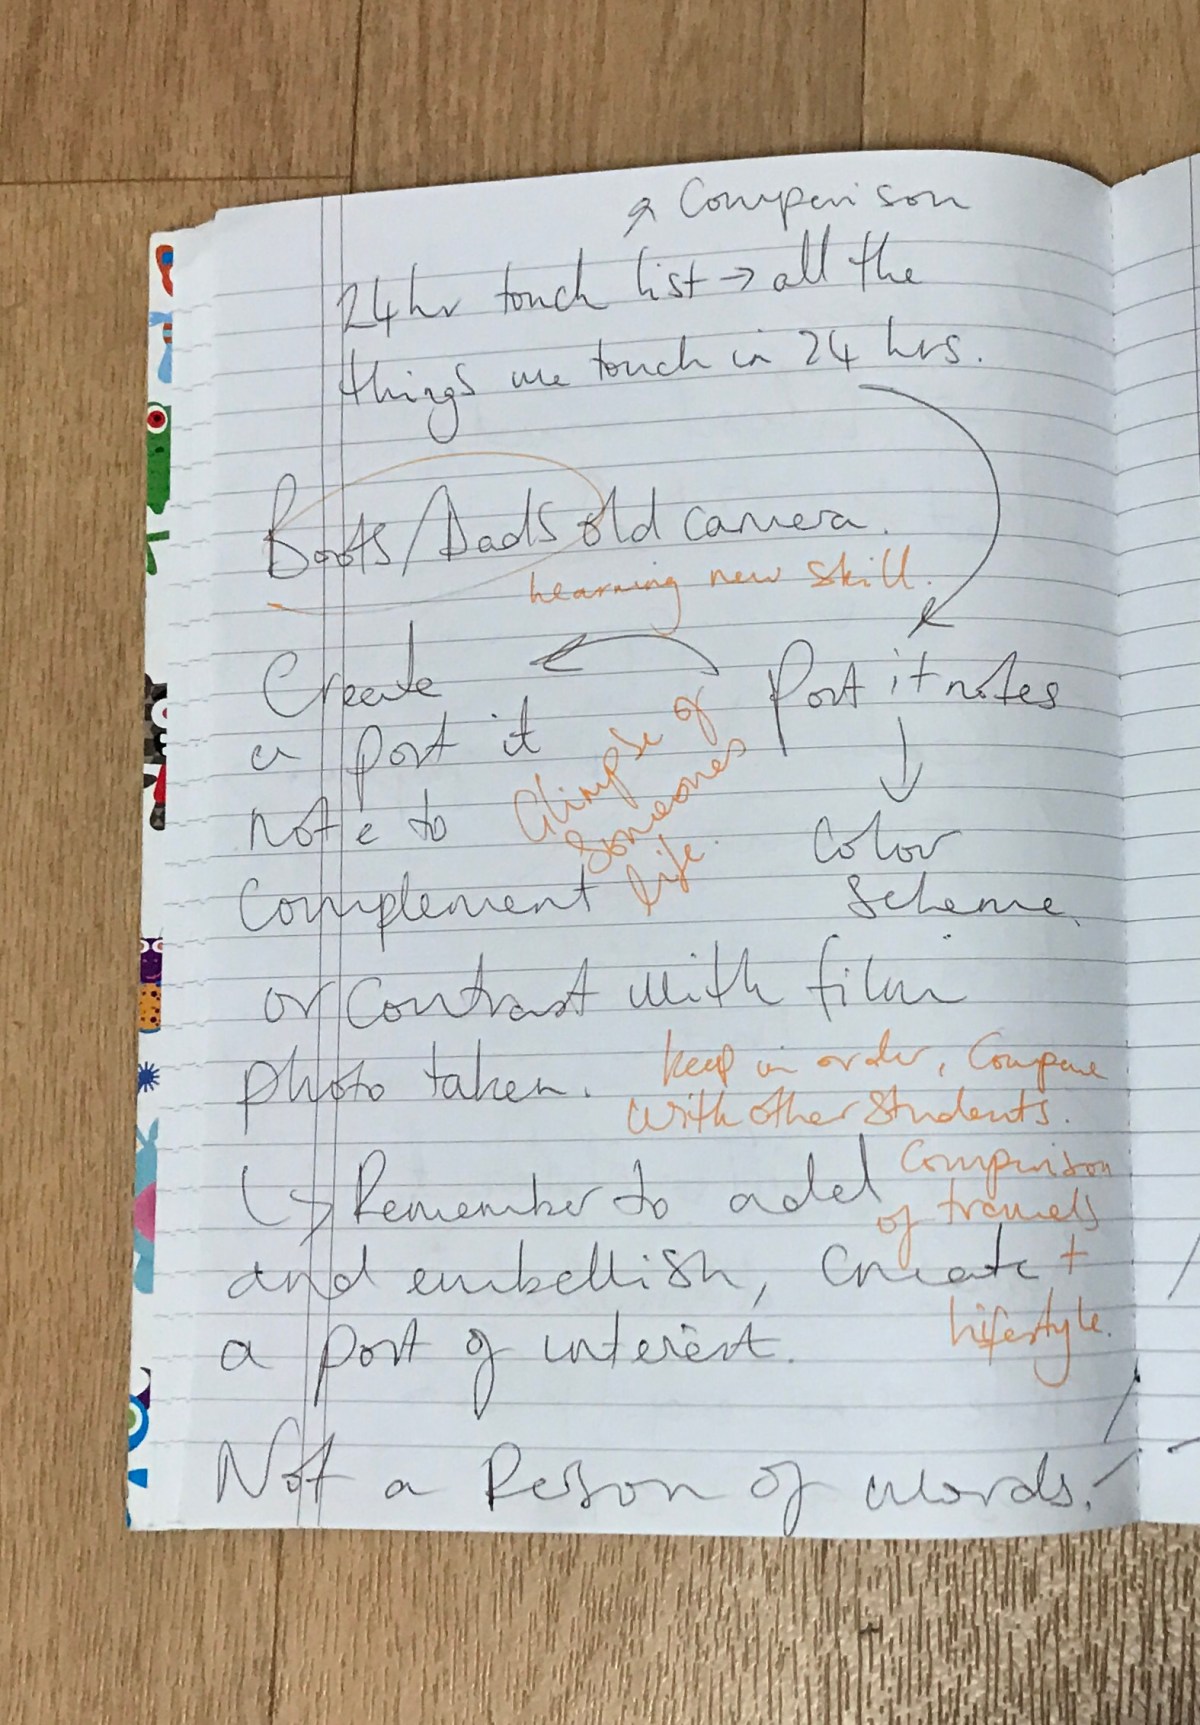 ↗ Comparison
24hr touch list → all the
things we touch in 24 hrs.
Boots/Dads old camera.
learning new skill.
Create
a post it
note to
Complement
Glimpse of
Someones
life.
Post it notes
↓
Color
Scheme.
or Contrast with film
photo taken.
keep in order, Compare
with other Students.
↳ Remember to add
Comparison
of travels
+
lifestyle.
and embellish, Create
a post of interest.
Not a Person of words.